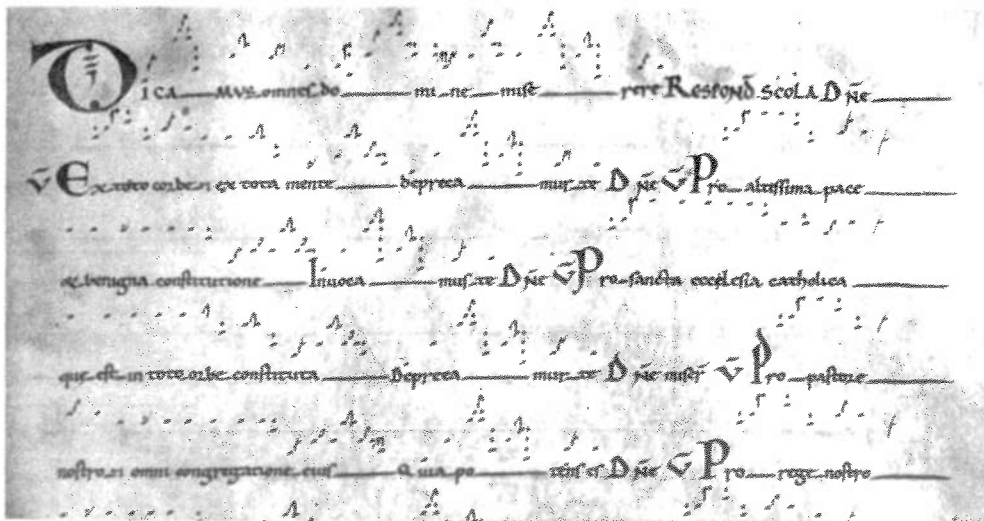 DICA MUS omnes do mi ne mise rere RESPOND SCOLA Dñe
V̄ Ex toto corde et ex tota mente depreca mur te Dñe V̄ Pro altissima pace
et benigna constitutione Invoca mus te Dñe V̄ Pro sancta ecclesia catholica
que est in toto orbe constituta Depreca mur te Dñe miser̄ V̄ Pro pastore
nostro et omni congregatione eius Quia po tens es Dñe V̄ Pro rege nostro